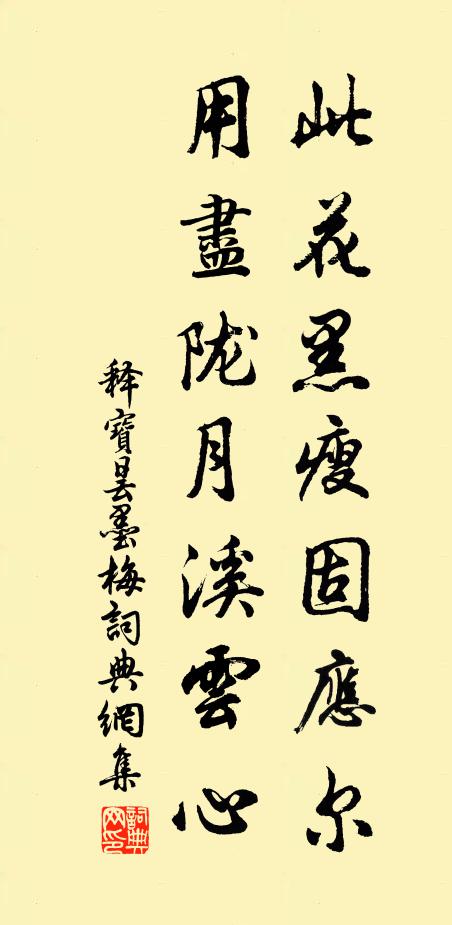 此花黑瘦固應尔
用盡陇月溪雲心
釋寶曇墨梅詞典網集
詞典网印